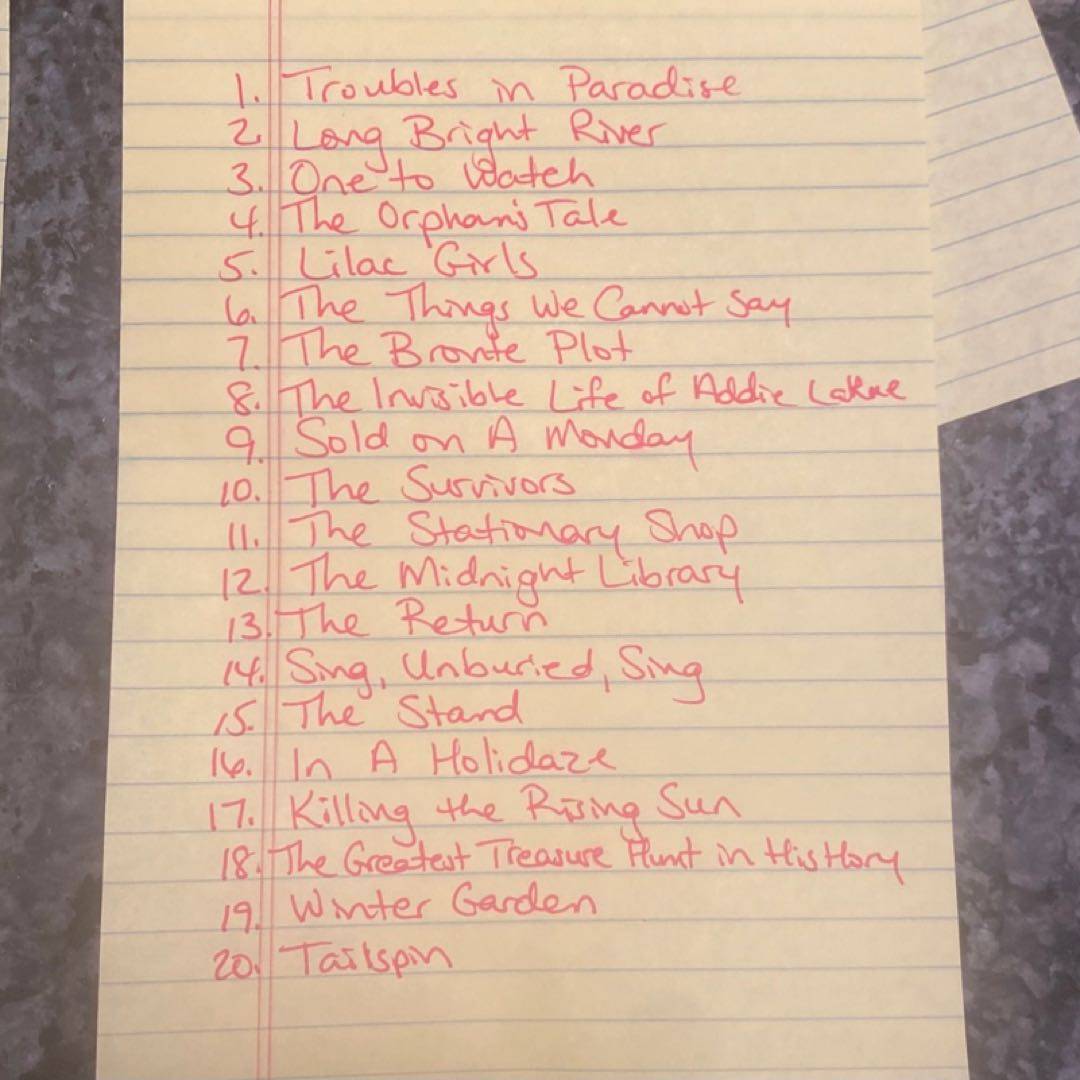 1. Troubles in Paradise
2. Long Bright River
3. One to Watch
4. The Orphan's Tale
5. Lilac Girls
6. The Things We Cannot Say
7. The Bronte Plot
8. The Invisible Life of Addie LaRue
9. Sold on A Monday
10. The Survivors
11. The Stationary Shop
12. The Midnight Library
13. The Return
14. Sing, Unburied, Sing
15. The Stand
16. In A Holidaze
17. Killing the Rising Sun
18. The Greatest Treasure Hunt in History
19. Winter Garden
20. Tailspin